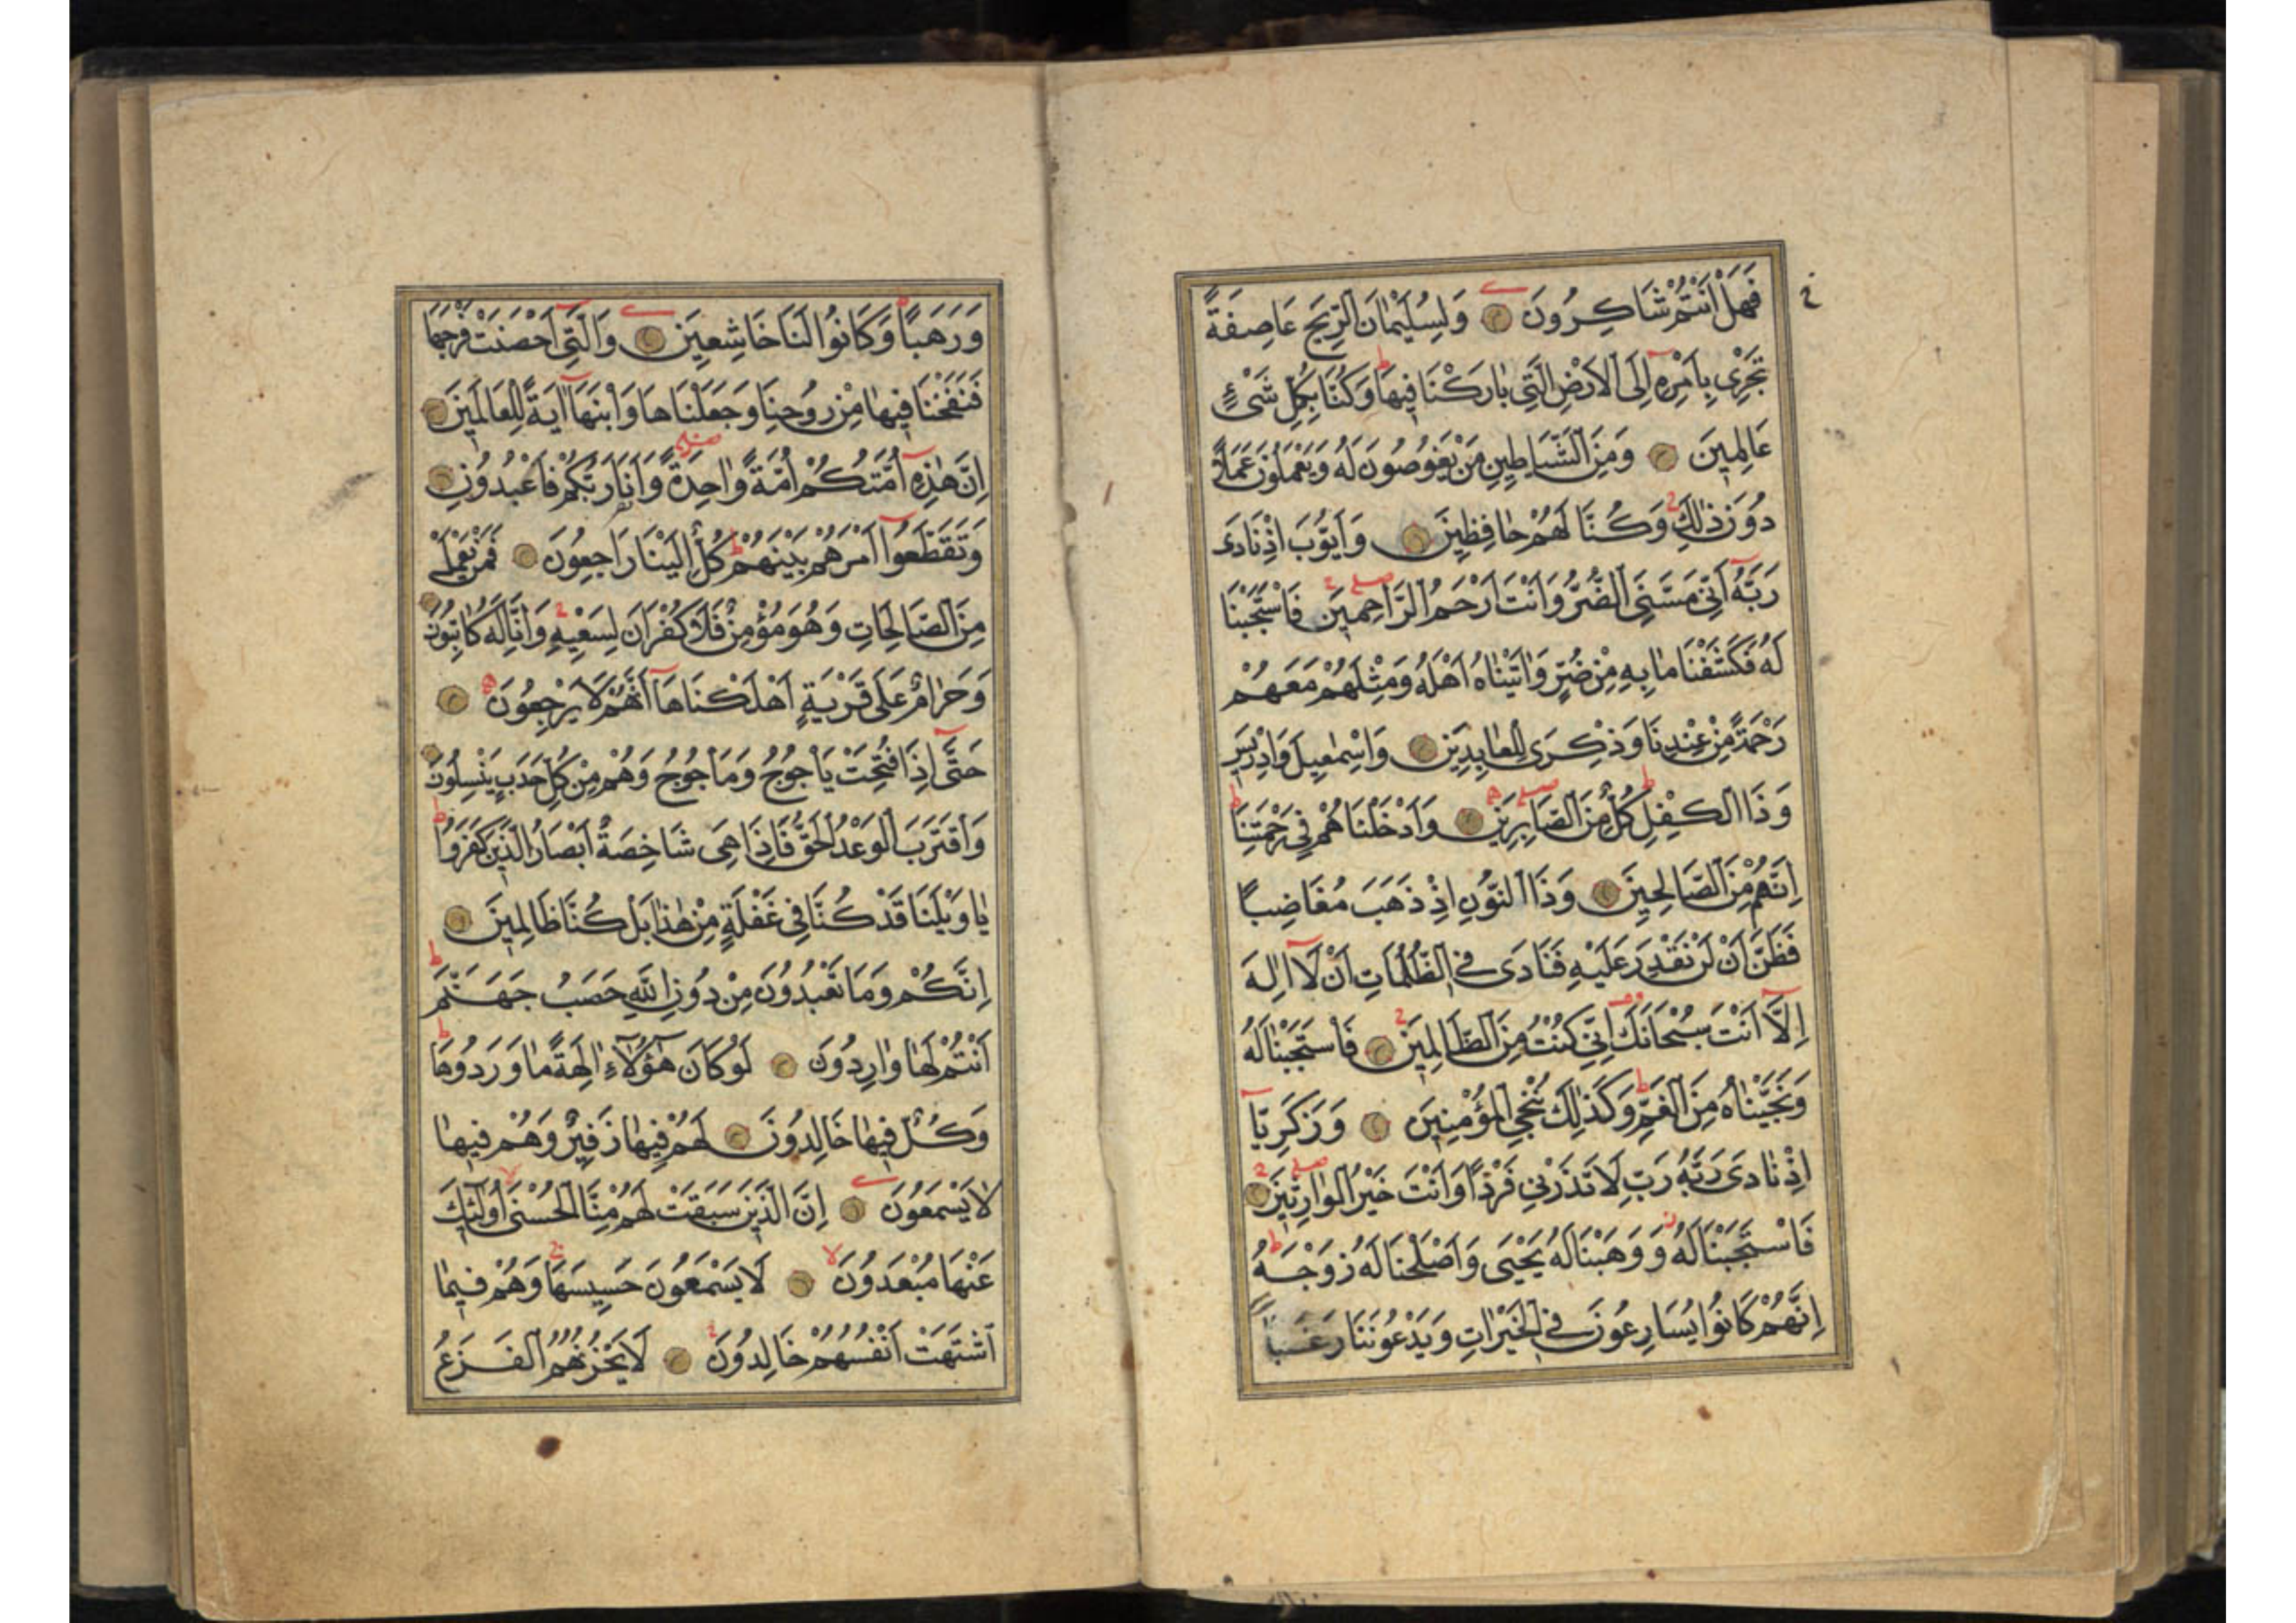 فَهَلْ اَنْتُمْ شَاكِرُونَ وَلِسُلَيْمٰانَ الرِّيحَ عَاصِفَةً
تَجْرِي بِاَمْرِهِ اِلَى الْاَرْضِ الَّتِي بٰارَكْنَا فِيهَا وَكُنَّا بِكُلِّ شَيْءٍ
عَالِمِينَ وَمِنَ الشَّيَاطِينِ مَنْ يَغُوصُونَ لَهُ وَيَعْمَلُونَ عَمَلًا
دُونَ ذٰلِكَ وَكُنَّا لَهُمْ حٰافِظِينَ وَاَيُّوبَ اِذْ نَادَى
رَبَّهُ اَنِّي مَسَّنِيَ الضُّرُّ وَاَنْتَ اَرْحَمُ الرَّاحِمِينَ فَاسْتَجَبْنَا
لَهُ فَكَشَفْنَا مٰا بِهِ مِنْ ضُرٍّ وَاٰتَيْنٰاهُ اَهْلَهُ وَمِثْلَهُمْ مَعَهُمْ
رَحْمَةً مِنْ عِنْدِنَا وَذِكْرَى لِلْعٰابِدِينَ وَاِسْمٰعِيلَ وَاِدْرِيسَ
وَذَا الْكِفْلِ كُلٌّ مِنَ الصَّابِرِينَ وَاَدْخَلْنَاهُمْ فِي رَحْمَتِنَا
اِنَّهُمْ مِنَ الصَّالِحِينَ وَذَا النُّونِ اِذْ ذَهَبَ مُغَاضِبًا
فَظَنَّ اَنْ لَنْ نَقْدِرَ عَلَيْهِ فَنَادَى فِي الظُّلُمَاتِ اَنْ لَا اِلٰهَ
اِلَّا اَنْتَ سُبْحَانَكَ اِنِّي كُنْتُ مِنَ الظَّالِمِينَ فَاسْتَجَبْنٰا لَهُ
وَنَجَّيْنٰاهُ مِنَ الْغَمِّ وَكَذٰلِكَ نُنْجِي الْمُؤْمِنِينَ وَزَكَرِيَّا
اِذْ نٰادَى رَبَّهُ رَبِّ لَا تَذَرْنِي فَرْدًا وَاَنْتَ خَيْرُ الْوٰارِثِينَ
فَاسْتَجَبْنَا لَهُ وَوَهَبْنَا لَهُ يَحْيَى وَاَصْلَحْنَا لَهُ زَوْجَهُ
اِنَّهُمْ كَانُوا يُسَارِعُونَ فِي الْخَيْرٰاتِ وَيَدْعُونَنَا رَغَبًا
وَرَهَبًا وَكَانُوا لَنَا خَاشِعِينَ وَالَّتِي اَحْصَنَتْ فَرْجَهَا
فَنَفَخْنَا فِيهٰا مِنْ رُوحِنَا وَجَعَلْنَاهَا وَابْنَهَا اٰيَةً لِلْعَالَمِينَ
اِنَّ هٰذِهِ اُمَّتُكُمْ اُمَّةً وَاحِدَةً وَاَنَا رَبُّكُمْ فَاعْبُدُونِ
وَتَقَطَّعُوا اَمْرَهُمْ بَيْنَهُمْ كُلٌّ اِلَيْنَا رَاجِعُونَ فَمَنْ يَعْمَلْ
مِنَ الصَّالِحَاتِ وَهُوَ مُؤْمِنٌ فَلَا كُفْرَانَ لِسَعْيِهِ وَاِنَّا لَهُ كَاتِبُونَ
وَحَرٰامٌ عَلَى قَرْيَةٍ اَهْلَكْنَاهَا اَنَّهُمْ لَا يَرْجِعُونَ
حَتَّى اِذَا فُتِحَتْ يَاْجُوجُ وَمَاْجُوجُ وَهُمْ مِنْ كُلِّ حَدَبٍ يَنْسِلُونَ
وَاقْتَرَبَ الْوَعْدُ الْحَقُّ فَاِذَا هِيَ شَاخِصَةٌ اَبْصَارُ الَّذِينَ كَفَرُوا
يٰا وَيْلَنَا قَدْ كُنَّا فِي غَفْلَةٍ مِنْ هٰذَا بَلْ كُنَّا ظَالِمِينَ
اِنَّكُمْ وَمَا تَعْبُدُونَ مِنْ دُونِ اللّٰهِ حَصَبُ جَهَنَّمَ
اَنْتُمْ لَهَا وٰارِدُونَ لَوْ كَانَ هٰؤُلَاءِ اٰلِهَةً مٰا وَرَدُوهَا
وَكُلٌّ فِيهٰا خَالِدُونَ لَهُمْ فِيهٰا زَفِيرٌ وَهُمْ فِيهٰا
لَا يَسْمَعُونَ اِنَّ الَّذِينَ سَبَقَتْ لَهُمْ مِنَّا الْحُسْنَى اُولٰئِكَ
عَنْهَا مُبْعَدُونَ لَا يَسْمَعُونَ حَسِيسَهَا وَهُمْ فِيمَا
اشْتَهَتْ اَنْفُسُهُمْ خَالِدُونَ لَا يَحْزُنُهُمُ الْفَزَعُ